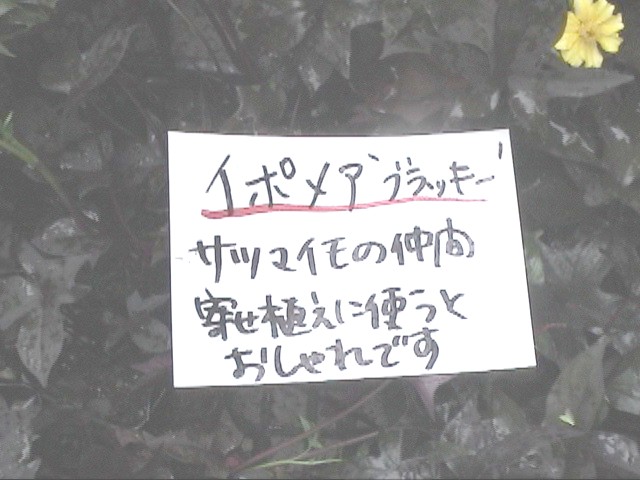 イポメア'ブラッキー'
サツマイモの仲間
寄せ植えに使うと
おしゃれです